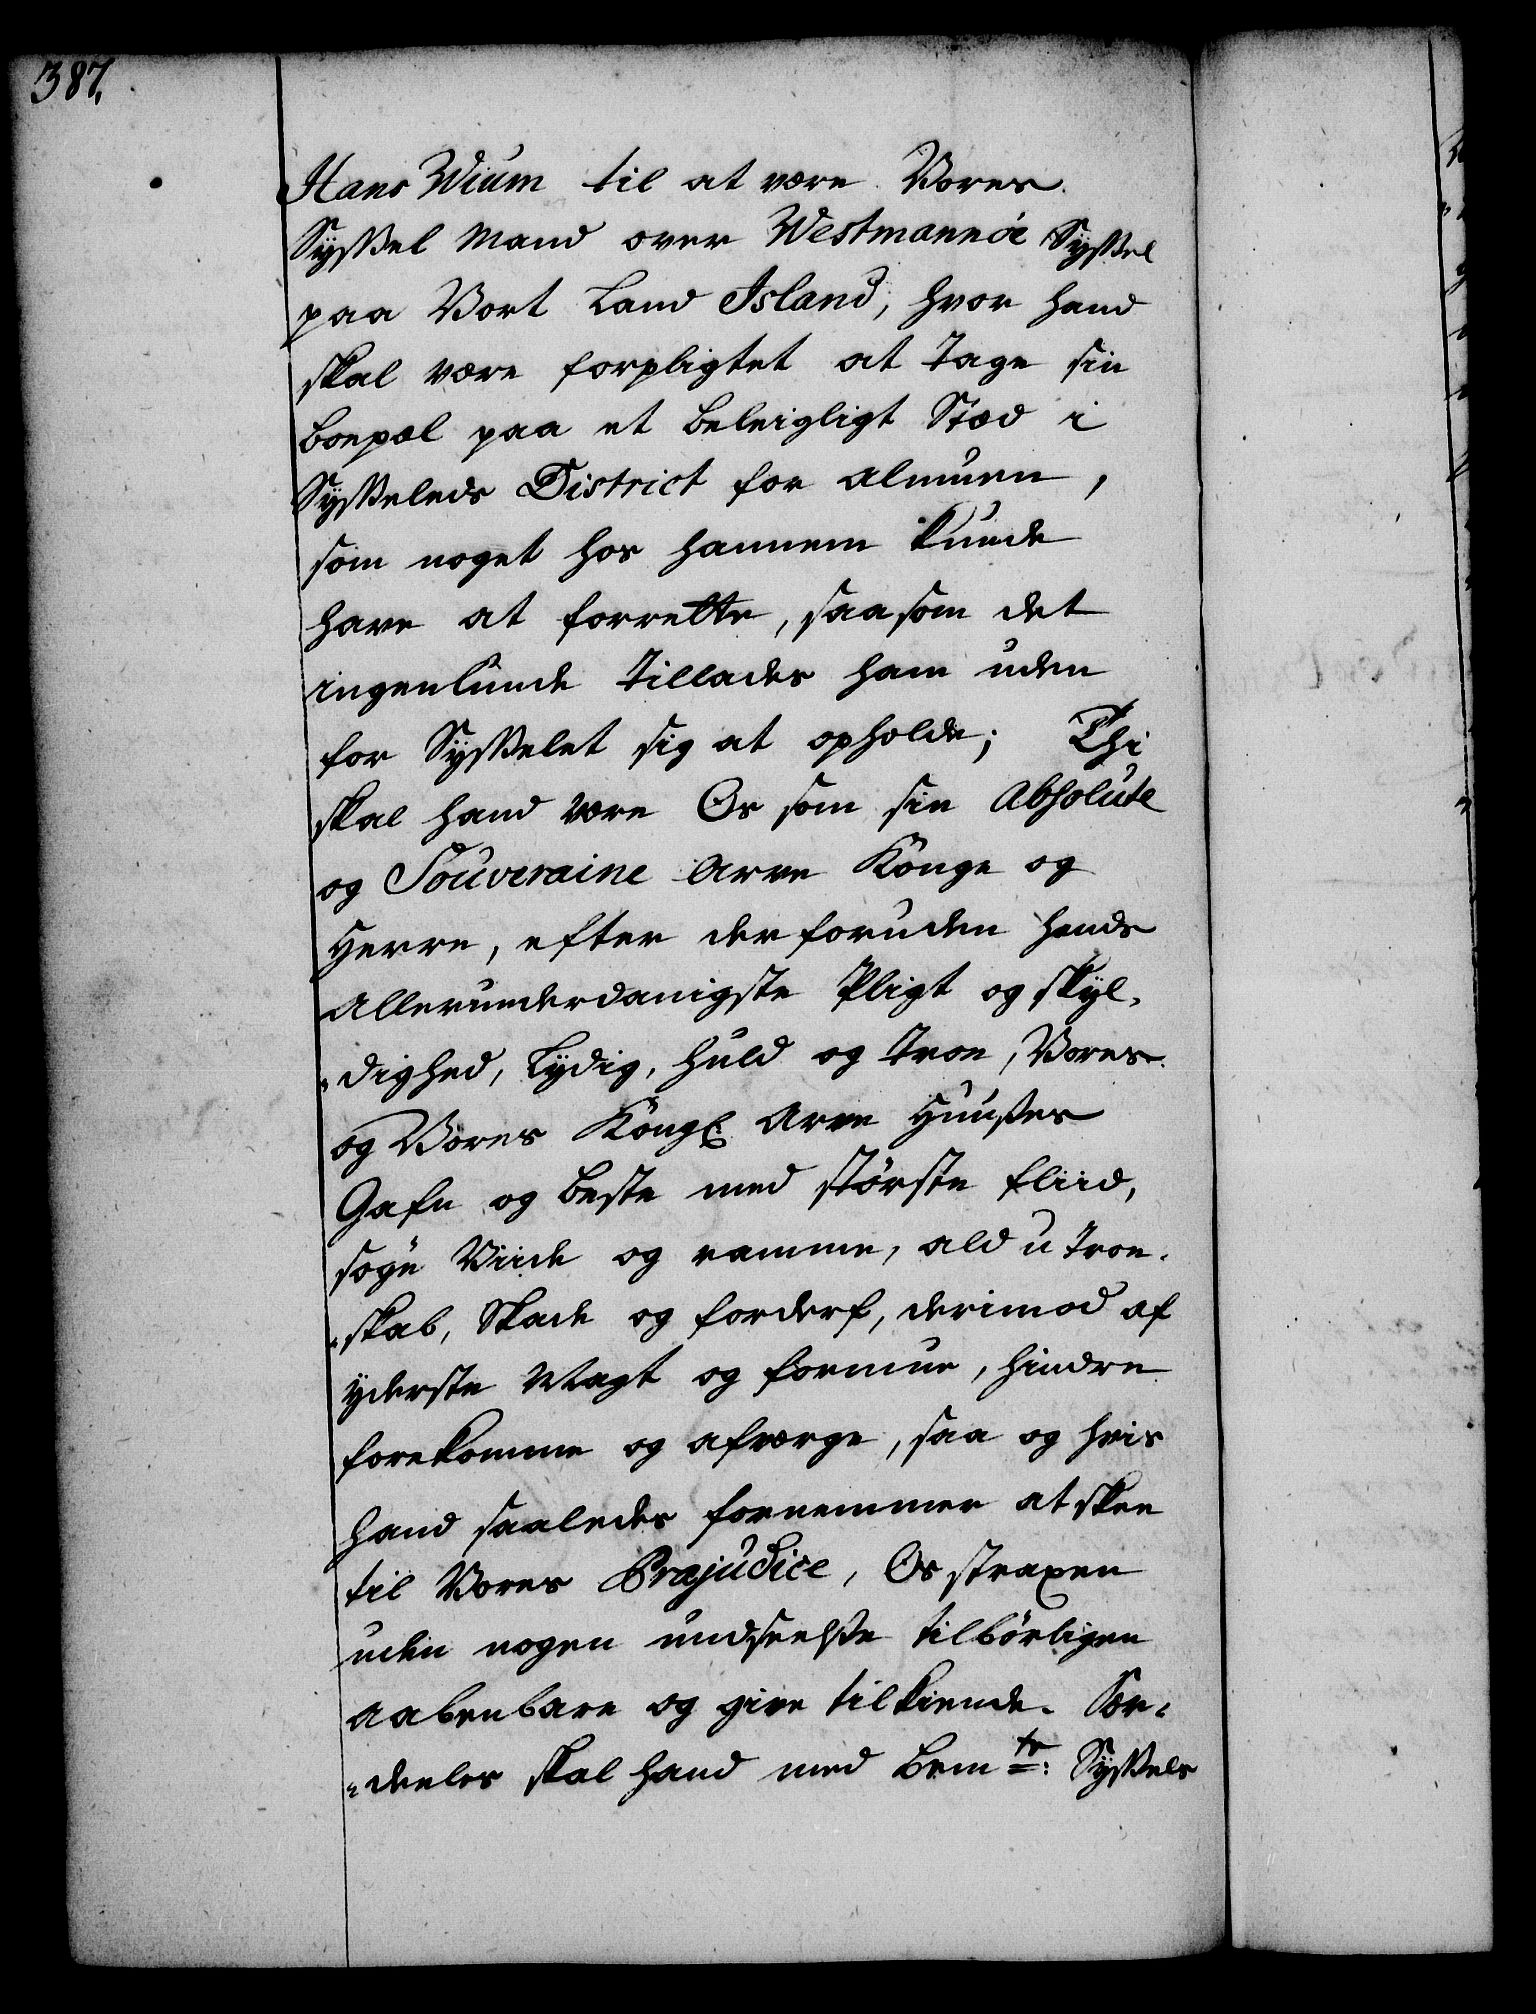 387.
Hans Wium til at være Vores
Sysßel Mand over Westmannöe Sysßel
paa Vort Land Island, hvor hand
skal være forpligtet at Tage sin
boepæl paa et beleigligt Stæd i
Sysßeleds District for almuen,
som noget hos hannem kunde
have at forrette, saasom det
ingenlunde Tillades ham uden
for Sysßelet sig at opholde; Thi
skal hand være Os som sin Absolute
og Souveraine Arve Konge og
Herre, efter der foruden hands
allerunderdanigste Pligt og skyl-
-dighed, Lydig, huld og Troe, Vores
og Vores Kongl: Arve Huußes
Gafn og beste med største fliid,
søge Viide og ramme, ald u Troe-
-skab, Skade og forderf, derimod af
yderste Magt og formue, hindre
forekomme og afværge, saa og hvis
hand saaledes fornemmer at skee
til Vores Præjudice, Os straxen
uden nogen undseelße tilbørligen
aabenbare og give tilkiende. Sær-
-deeles skal hand med bemte: Sysßels